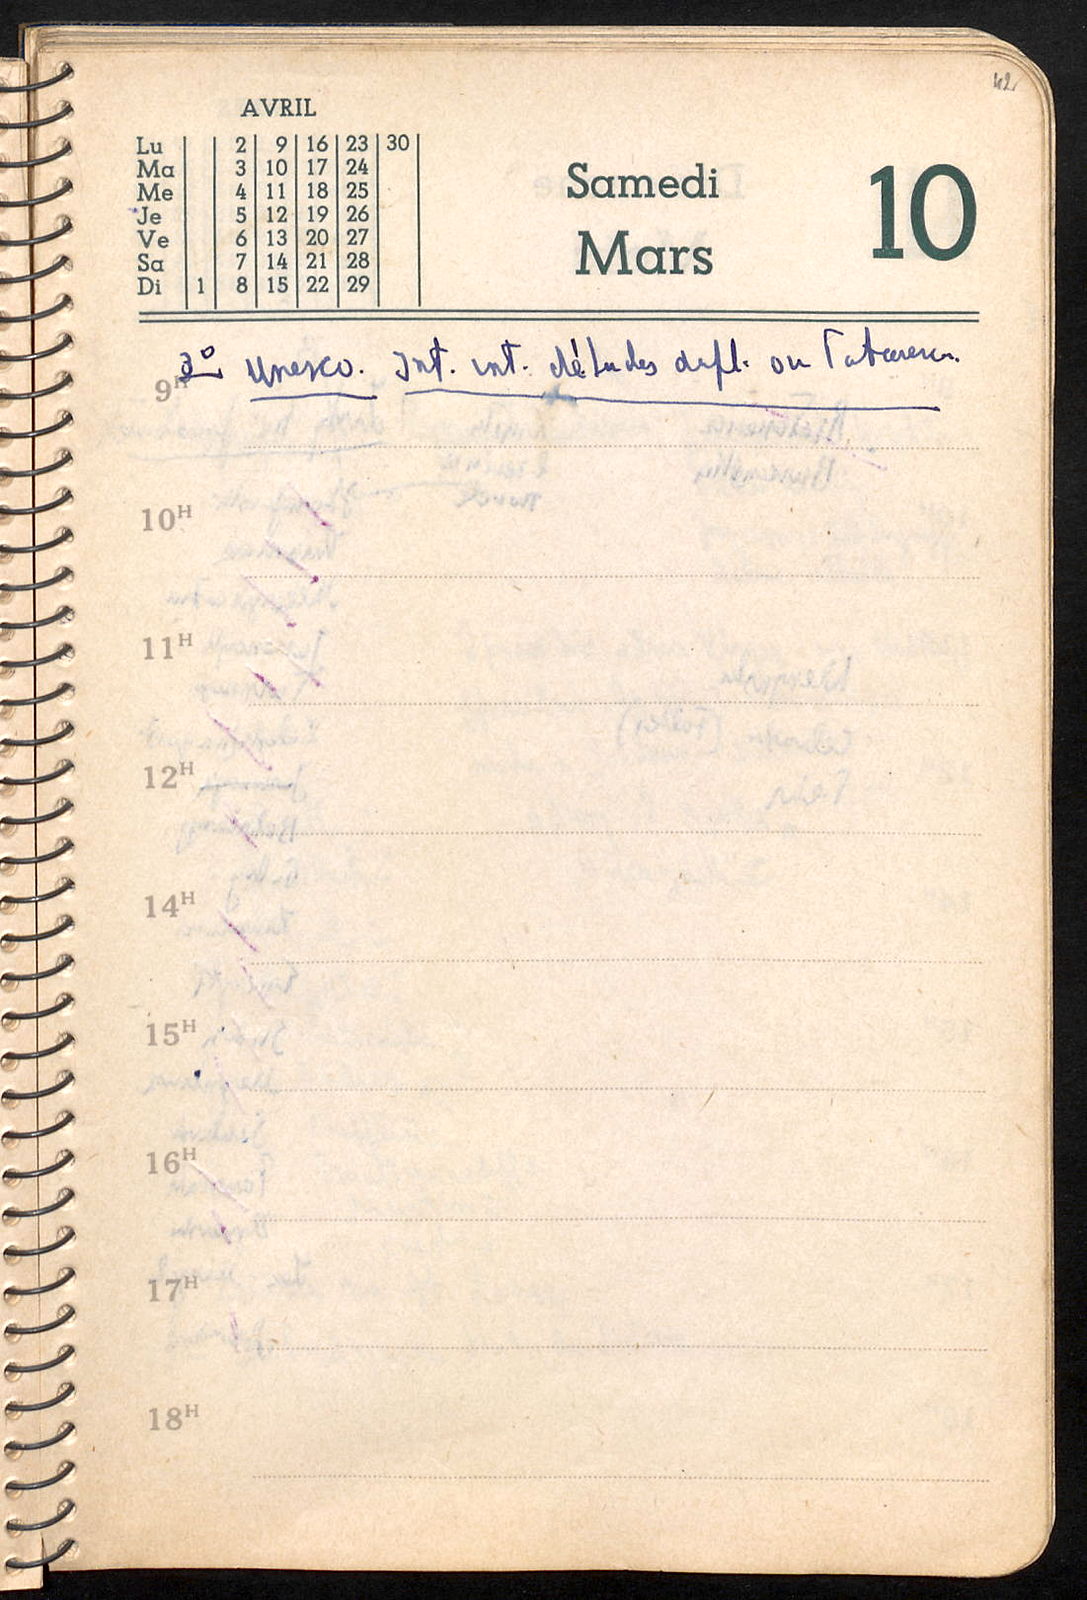 42
AVRIL
Lu 2 9 16 23 30
Ma 3 10 17 24
Me 4 11 18 25
Je 5 12 19 26
Ve 6 13 20 27
Sa 7 14 21 28
Di 1 8 15 22 29
Samedi 10
Mars
3° Unesco. Int. int. d'études ou
9H
10H
11H
12H
14H
15H
16H
17H
18H